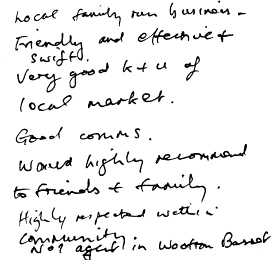 Local family run business -
Friendly and effective +
swift.
Very good k + u of
local market.
Good comms.
Would highly recommend
to friends + family.
Highly respected within
community.
No 1 agent in Wootton Bassett